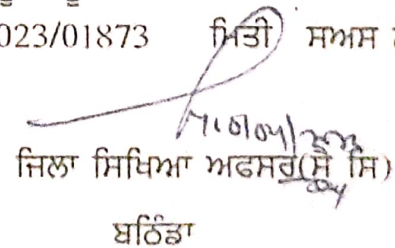 023/01873 ਮਿਤੀ ਸਅਸ
ਜਿਲਾ ਸਿਖਿਆ ਅਫਸਰ(ਸੈ ਸਿ)
ਬਠਿੰਡਾ